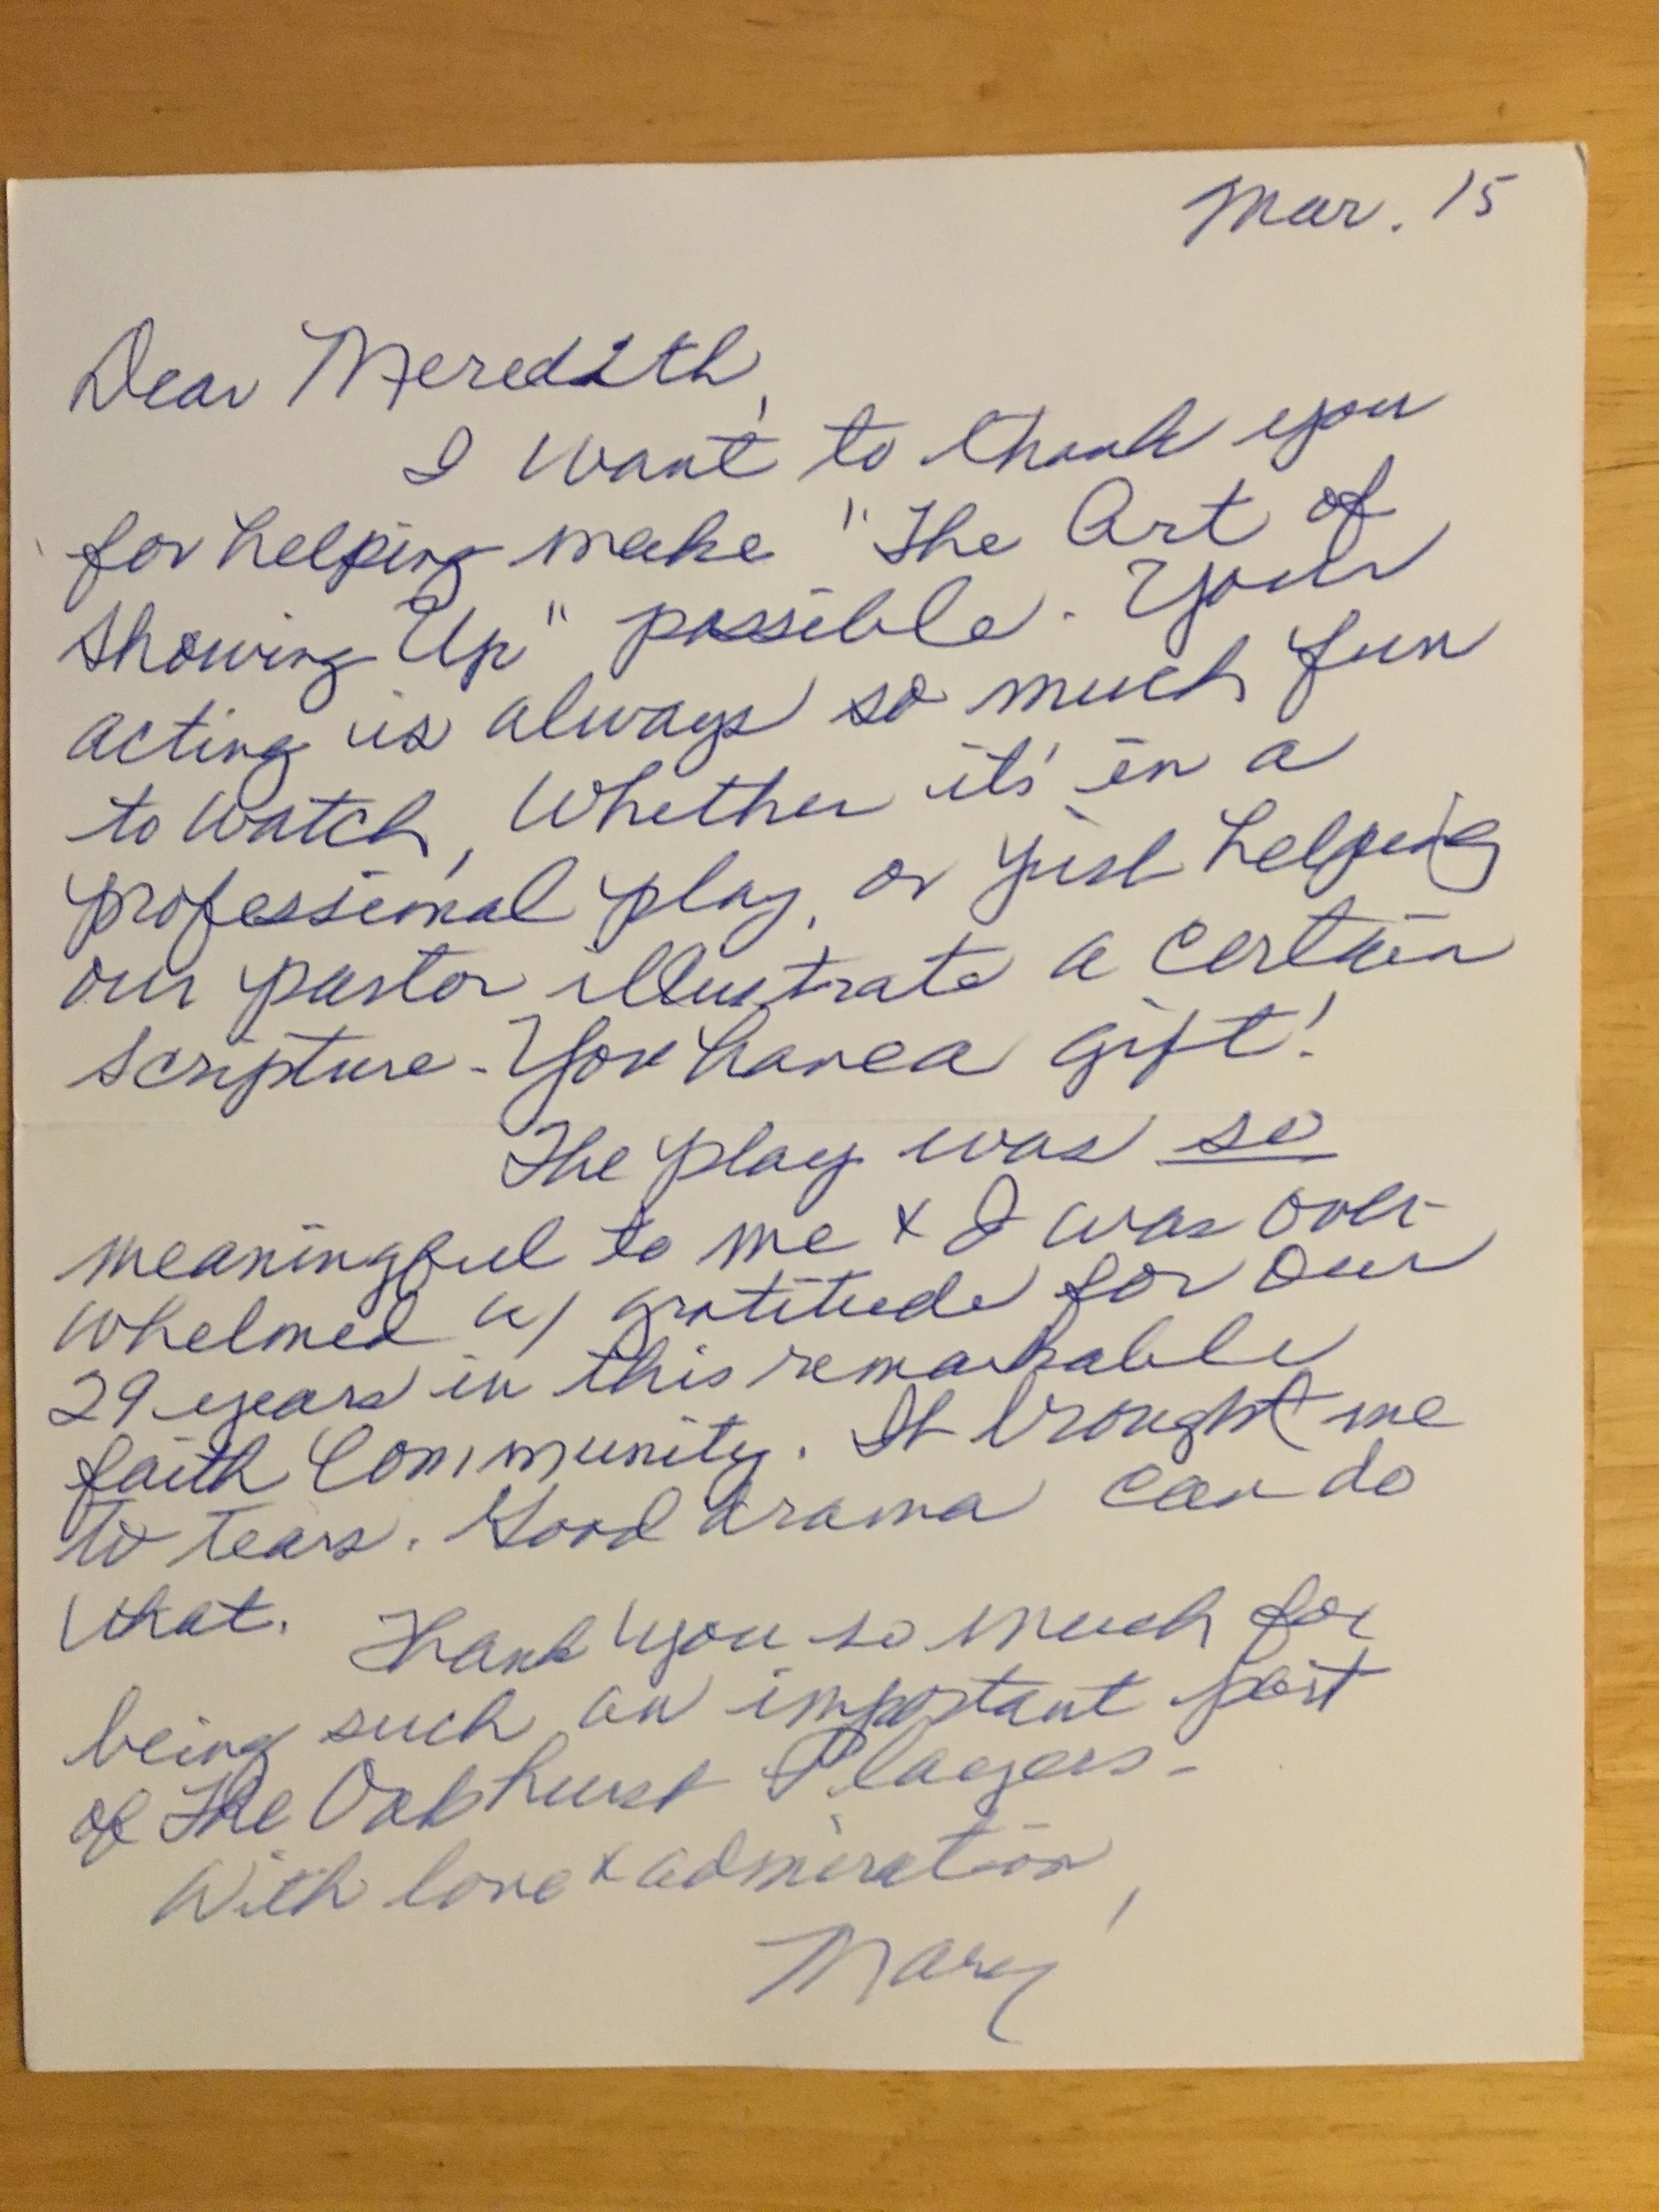 Mar. 15
Dear Meredith,
I want to thank you
for helping make "The Art of
Showing Up" possible. Your
acting is always so much fun
to watch, whether it's in a
professional play, or just helping
our pastor illustrate a certain
scripture - You have a gift!
The play was so
meaningful to me & I was over-
whelmed w/ gratitude for our
29 years in this remarkable
faith community. It brought me
to tears. Good drama can do
that.
Thank you so much for
being such an important part
of The Oakhurst Players -
With love & admiration,
Mary